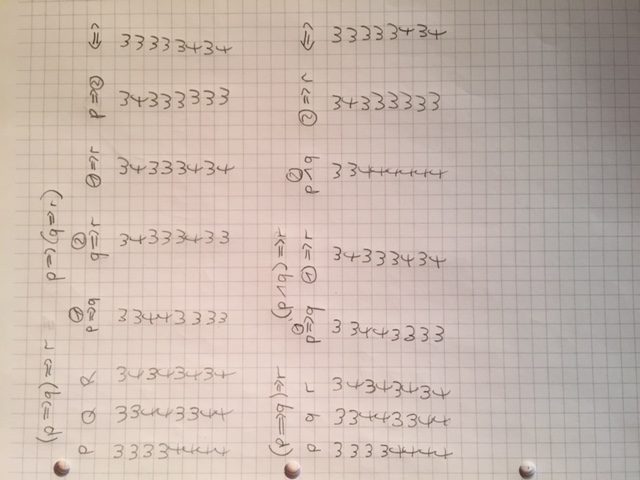 (p => q) => r    p => (q => r)
P Q R p=>q ① q=>r ② ①=>r p=>② <=>
w w w w w w w w
w w f w f f f w
w f w f w w w w
w f f f w w w w
f w w w w w w w
f w f w f f w f
f f w w w w w w
f f f w w f w f
(p => q) => r    (p ∧ q) => r
p q r p=>q ① ①=>r p∧q ② ②=>r <=>
w w w w w w w w
w w f w f w f w
w f w f w f w w
w f f f w f w w
f w w w w f w w
f w f w f f w f
f f w w w f w w
f f f w f f w f